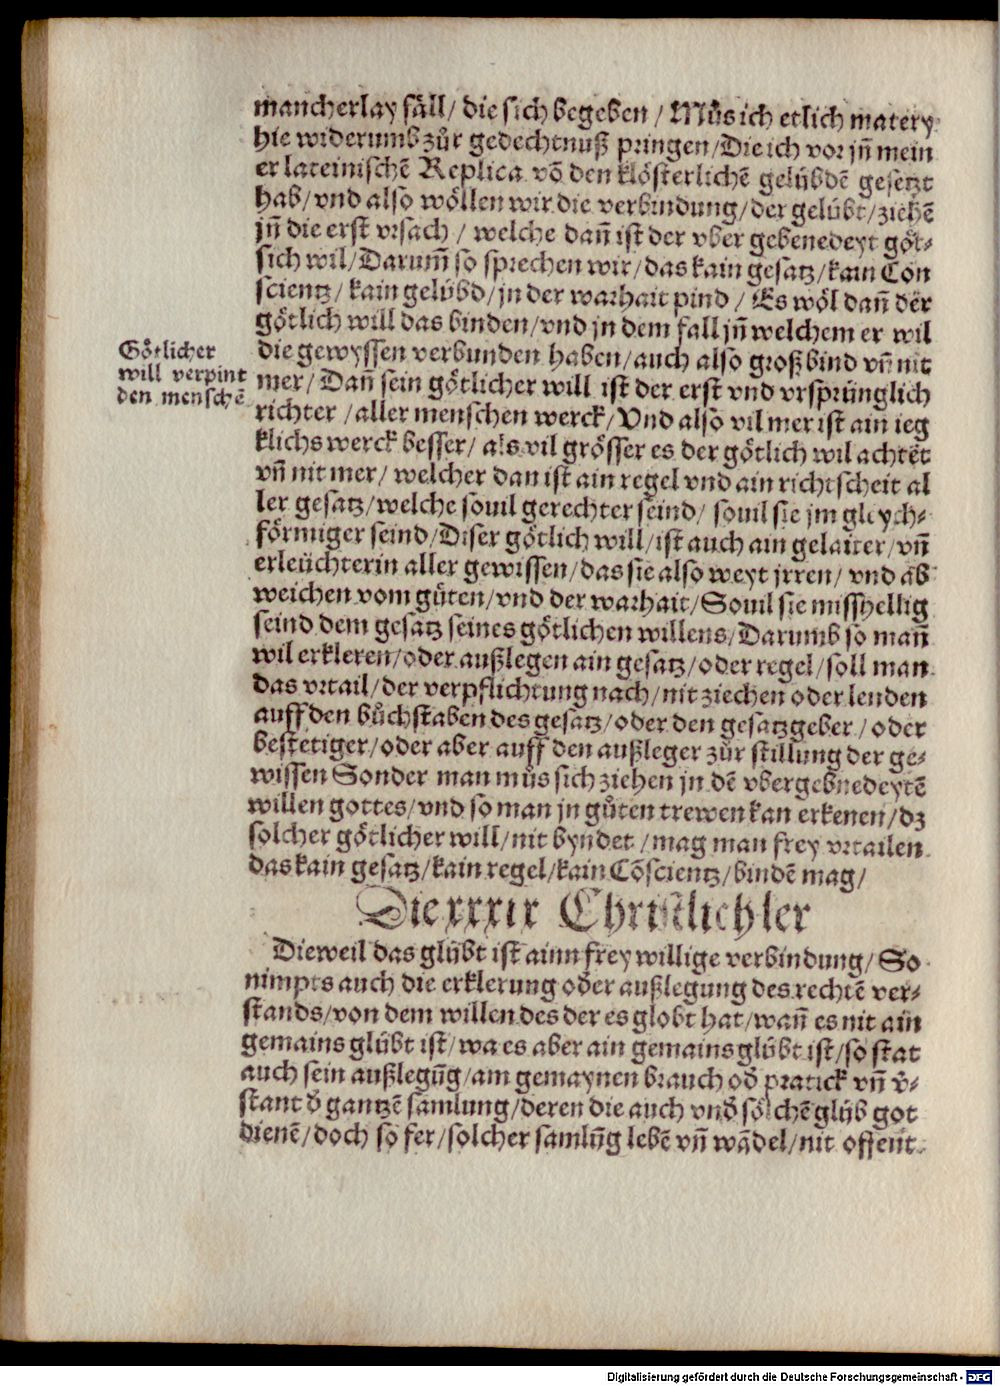 mancherlay fäll/ die sich begeben / Můs ich etlich matery
hie widerumb zůr gedechtnuß pringen/Die ich vor jñ mein
er lateinischē Replica vō den klösterlichē gelübdē gesetzt
hab/vnd also wöllen wir die verbindung/der gelübt/ziehē
jñ die erst vrsach / welche dañ ist der vber gebenedeyt göt-
sich wil/Darum̄ so sprechen wir/das kain gesatz/kain Con
scientz/ kain gelübd/jn der warhait pind / Es wöl dañ der
götlich will das binden/vnd jn dem fall jñ welchem er wil
die gewyssen verbunden haben/auch also groß bind vñ nit
mer/ Dañ sein götlicher will ist der erst vnd vrsprünglich
richter /aller menschen werck/Vnd also vil mer ist ain ieg
klichs werck besser/ als vil grösser es der götlich wil achtet
vñ nit mer/ welcher dan ist ain regel vnd ain richtscheit al
ler gesatz/welche souil gerechter seind/ souil sie jm gleych-
förmiger seind/Diser götlich will/ist auch ain gelaiter/vñ
erleüchterin aller gewissen/das sie also weyt jrren/ vnd ab
weichen vom gůten/vnd der warhait/Souil sie misshellig
seind dem gesatz seines götlichen willens/Darumb so mañ
wil erkleren/oder außlegen ain gesatz/oder regel/soll man
das vrtail/der verpflichtung nach/nit ziechen oder lenden
auff den bůchstaben des gesatz/oder den gesatzgeber/oder
bestetiger/oder aber auff den außleger zůr stillung der ge-
wissen Sonder man můs sich ziehen jn dē vbergebnedeytē
willen gottes/vnd so man jn gůten trewen kan erkenen/dz
solcher götlicher will/nit byndet /mag man frey vrtailen
das kain gesatz/kain regel/kain Cōscientz/bindē mag/
Götlicher
will verpint
den menschē
Die xxxix Christlich ler
Dieweil das glübt ist ainn frey willige verbindung/So
nimpts auch die erklerung oder außlegung des rechtē ver-
stands/von dem willen des der es globt hat/wañ es nit ain
gemains glübt ist/wa es aber ain gemains glübt ist/so stat
auch sein außlegūg/am gemaynen brauch od̄ pratick vñ v̄-
stant d̄ gantzē samlung/deren die auch vnd̄ sölchē glüb got
dienē/doch so fer/solcher samlūg lebē vñ wādel/nit offent-
Digitalisierung gefördert durch die Deutsche Forschungsgemeinschaft - DFG